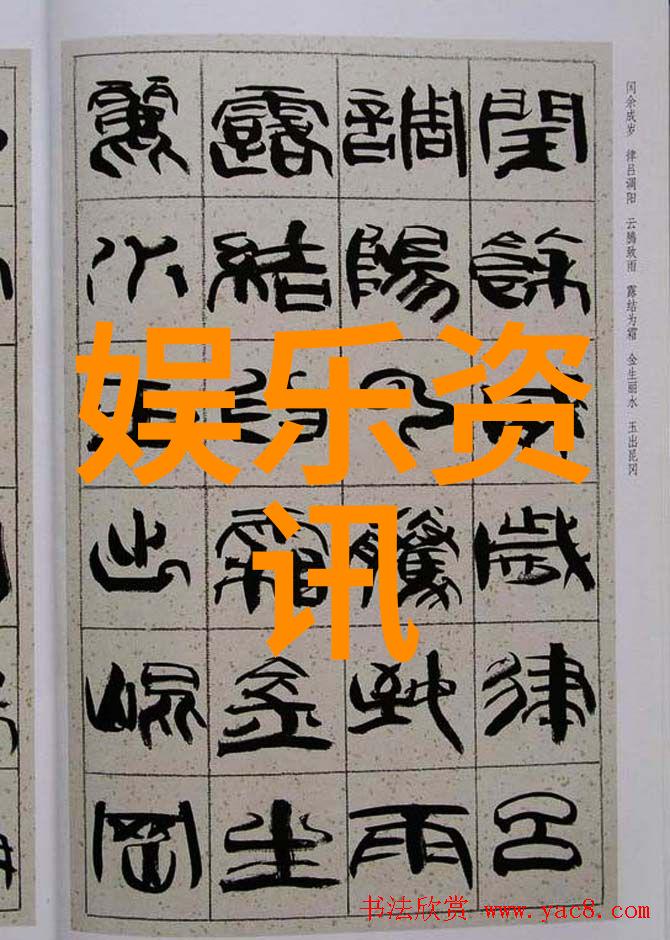 闰余成岁 律吕调阳 云腾致雨 露结为霜 金生丽水 玉出昆冈
閏餘成歲律呂
調陽云騰致雨
露結為霜金生
麗水玉出崐岡
娱乐资
讯
书法欣赏 www.yac8.com